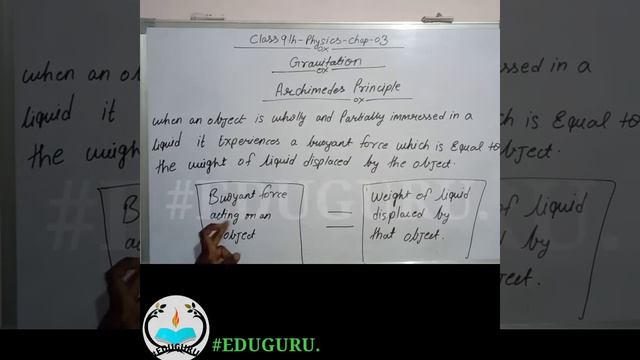 Class 9th-Physics-chap-03
Gravitation
Archimedes Principle
when an object is wholly and Partially immressed in a
liquid it Experiences a buoyant force which is Equal to
the weight of liquid displaced by the object.
Buoyant force
acting on an
object
=
Weight of liquid
displaced by
that object.
#EDUGURU.
EDUGURU
#EDUGURU.